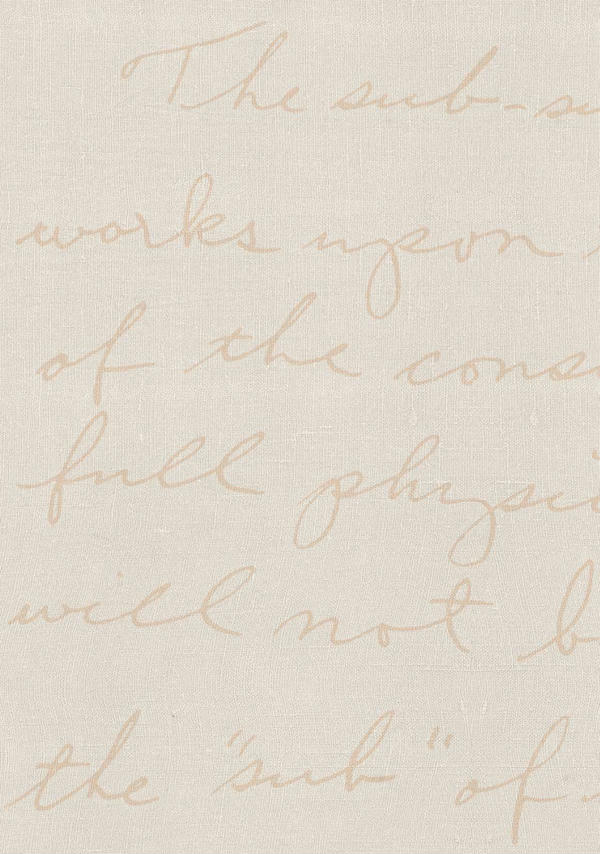 The sub-su
works upon
of the cons
full physi
will not b
the "sub" of